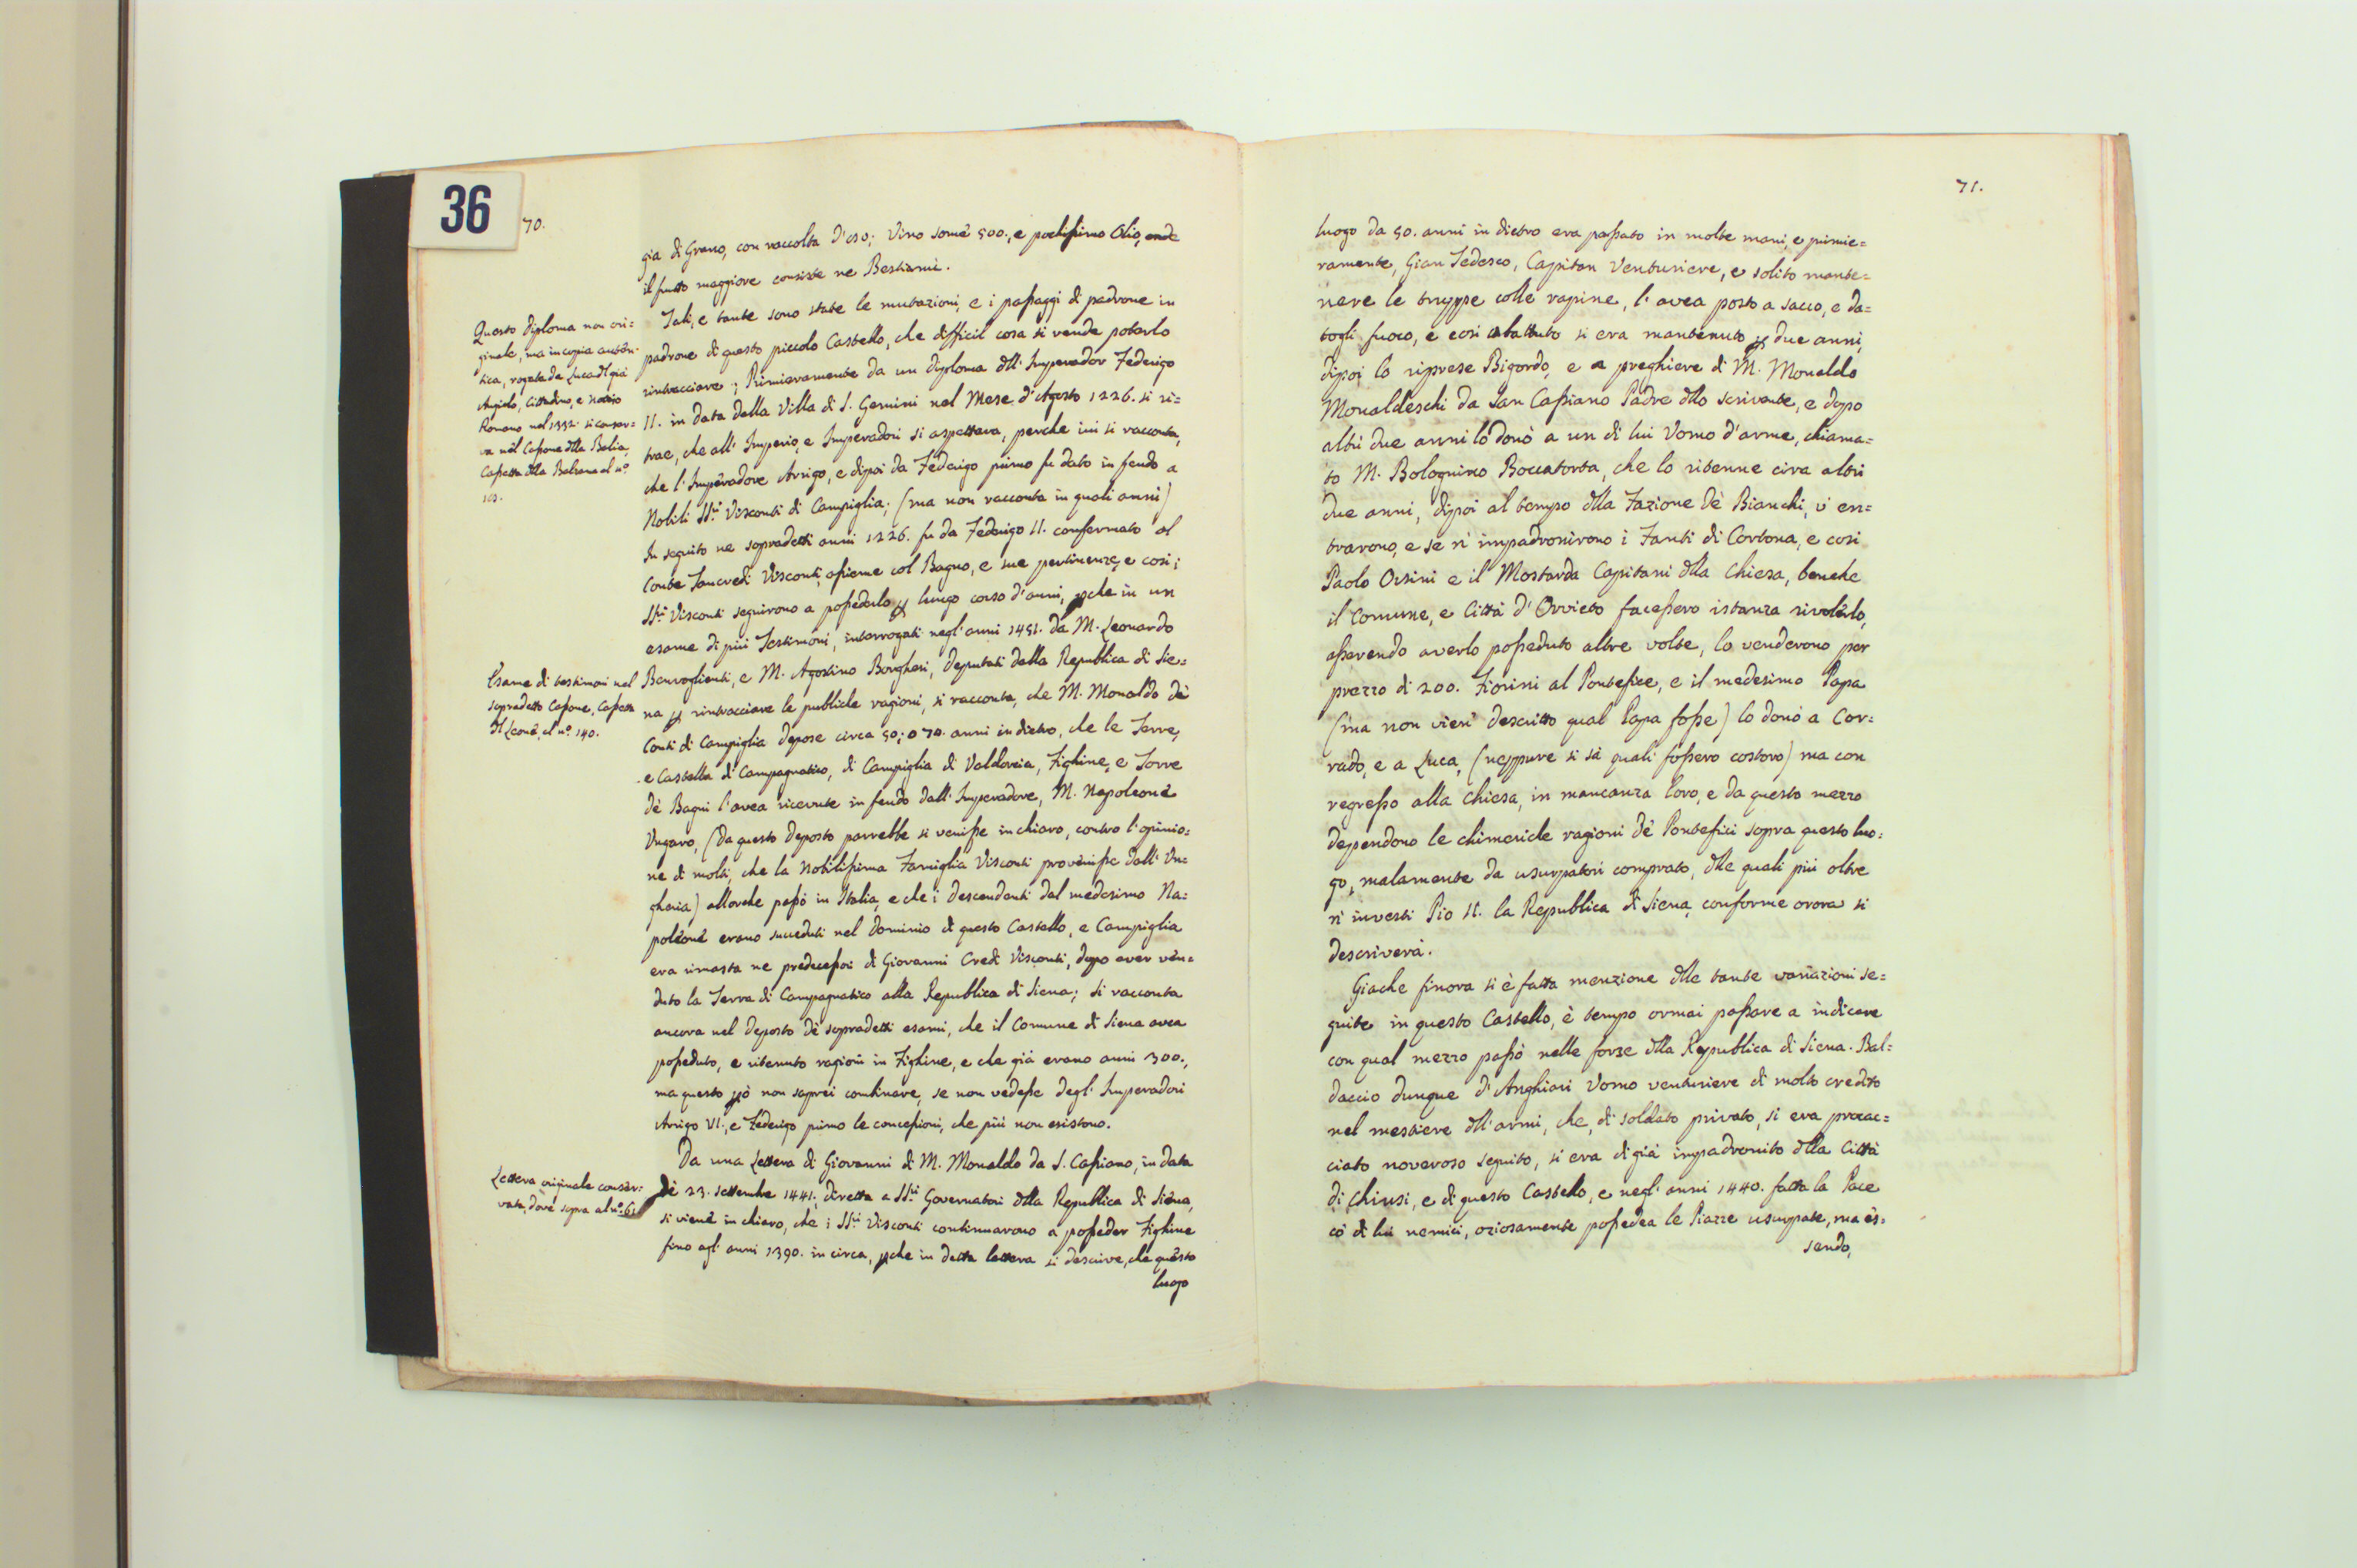 36
70.
gia di Grano, con raccolta d'oro; Vino some 500., e pochissimo Olio, onde
il frutto maggiore consiste ne Bestiami.
Tali, e tante sono state le mutazioni, e i passaggi di padrone in
padrone di questo piccolo Castello, che difficil cosa si rende poterlo
rintracciare; Primieramente da un Diploma dll' Imperador Federigo
II. in data della Villa di S. Gemini nel Mese d'Agosto 1226. si ri=
trae, che all' Imperio, e Imperadori si aspettava, perche ivi si racconta,
che l' Imperadore Arrigo, e dipoi da Federigo primo fu dato in feudo a
Nobili SSri Visconti di Campiglia; (ma non racconta in quali anni)
In seguito ne sopradetti anni 1226. fu da Federigo II. confermato al
Conte Tancredi Visconti, assieme col Bagno, e sue pertinenze, e cosi i
SSri Visconti seguirono a possederlo p lungo corso d'anni, pche in un
esame di più Testimoni, interrogati negl' anni 1451. da M. Leonardo
Benvoglienti, e M. Agostino Borghesi, deputati dalla Republica di Sie=
na p rintracciare le publiche ragioni, si racconta, che M. Monaldo de
Conti di Campiglia depose circa 50; o 70. anni in dietro, che le Terre,
e Castella di Campagnatico, di Campiglia di Valdorcia, Fighine, e Torre
dè Bagni l'avea ricevute in feudo dall' Imperadore, M. Napoleone
Ungaro, (da questo deposto parrebbe si venisse in chiaro, contro l'opinio=
ne di molti, che la Nobilissima Famiglia Visconti provenisse dall' Un=
gheria) allorche passò in Italia, e che i descendenti dal medesimo Na=
poleone erano succeduti nel Dominio di questo Castello, e Campiglia
era rimasta ne predecessori di Giovanni Credi Visconti, dopo aver ven=
duto la Terra di Campagnatico alla Republica di Siena; si racconta
ancora nel deposto dè sopradetti esami, che il Comune di Siena avea
posseduto, e ritenuto ragioni in Fighine, e che già erano anni 300.,
ma questo pò non saprei combinare, se non vedesse degl' Imperadori
Arrigo VI., e Federigo primo le concessioni, che più non esistono.
Da una Lettera di Giovanni di M. Monaldo da S. Cassiano, in data
dè 23. Settembre 1441. diretta a SSri Governatori dlla Republica di Siena,
si viene in chiaro, che i SSri Visconti continuarono a posseder Fighine
fino agl' anni 1390. in circa, pche in detta lettera si descrive, che questo
luogo
Questo diploma non ori=
ginale, ma in copia auten=
tica, rogata da Luca dl già
Angielo, Cittadino, e Notaio
Romano nel 1332. si conser=
va nel Cassone dlla Balia,
Cassetta dlla Balzana al no.
103.
Esame di testimoni nel
sopradetto Cassone, Cassetta
dl Leone, al no. 140.
Lettera originale conser=
vata, dove sopra al no. 61
71.
luogo da 50. anni in dietro era passato in molte mani, e primie=
ramente, Gian Tedesco, Capitan Venturiere, e solito mante=
nere le truppe colle rapine, l'avea posto a sacco, e da=
togli fuoco, e così abattuto si era mantenuto p due anni,
dipoi lo riprese Bigordo, e a preghiere di M. Monaldo
Monaldeschi da San Cassiano Padre dllo scrivente, e dopo
altri due anni lo donò a un di lui Vomo d'arme, chiama=
to M. Bolognino Boccatorta, che lo ritenne circa altri
due anni, dipoi al tempo dlla Fazione dè Bianchi, v' en=
trarono, e se n' impadronirono i Fanti di Cortona, e così
Paolo Orsini e il Mostarda Capitani dlla Chiesa, benche
il Comune, e Città d'Orvieto facessero istanza rivolerlo,
asserendo averlo posseduto altre volte, lo venderono per
prezzo di 200. Fiorini al Pontefice, e il medesimo Papa
(ma non vien' descritto qual Papa fosse) lo donò a Cor=
rado, e a Luca, (neppure si sà quali fossero costoro) ma con
regresso alla Chiesa, in mancanza loro, e da questo mezzo
dependono le chimeriche ragioni dè Pontefici sopra questo luo=
go, malamente da usurpatori comprato, dlle quali più oltre
n' investi Pio II. la Republica di Siena, conforme orora si
descriverà.
Giache finora si è fatta menzione dlle tante variazioni se=
guite in questo Castello, è tempo ormai passare a indicare
con qual mezzo passò nelle forze dlla Republica di Siena. Bal=
daccio dunque d'Anghiari Vomo venturiere di molto credito
nel mestiere dll'armi, che, di soldato privato, si era procac=
ciato noveroso seguito, si era di già impadronito dlla Città
di Chiusi, e di questo Castello, e negl' anni 1440. fatta la Pace
cò di lui nemici, oziosamente possedea le Piazze usurpate, ma es=
sendo,